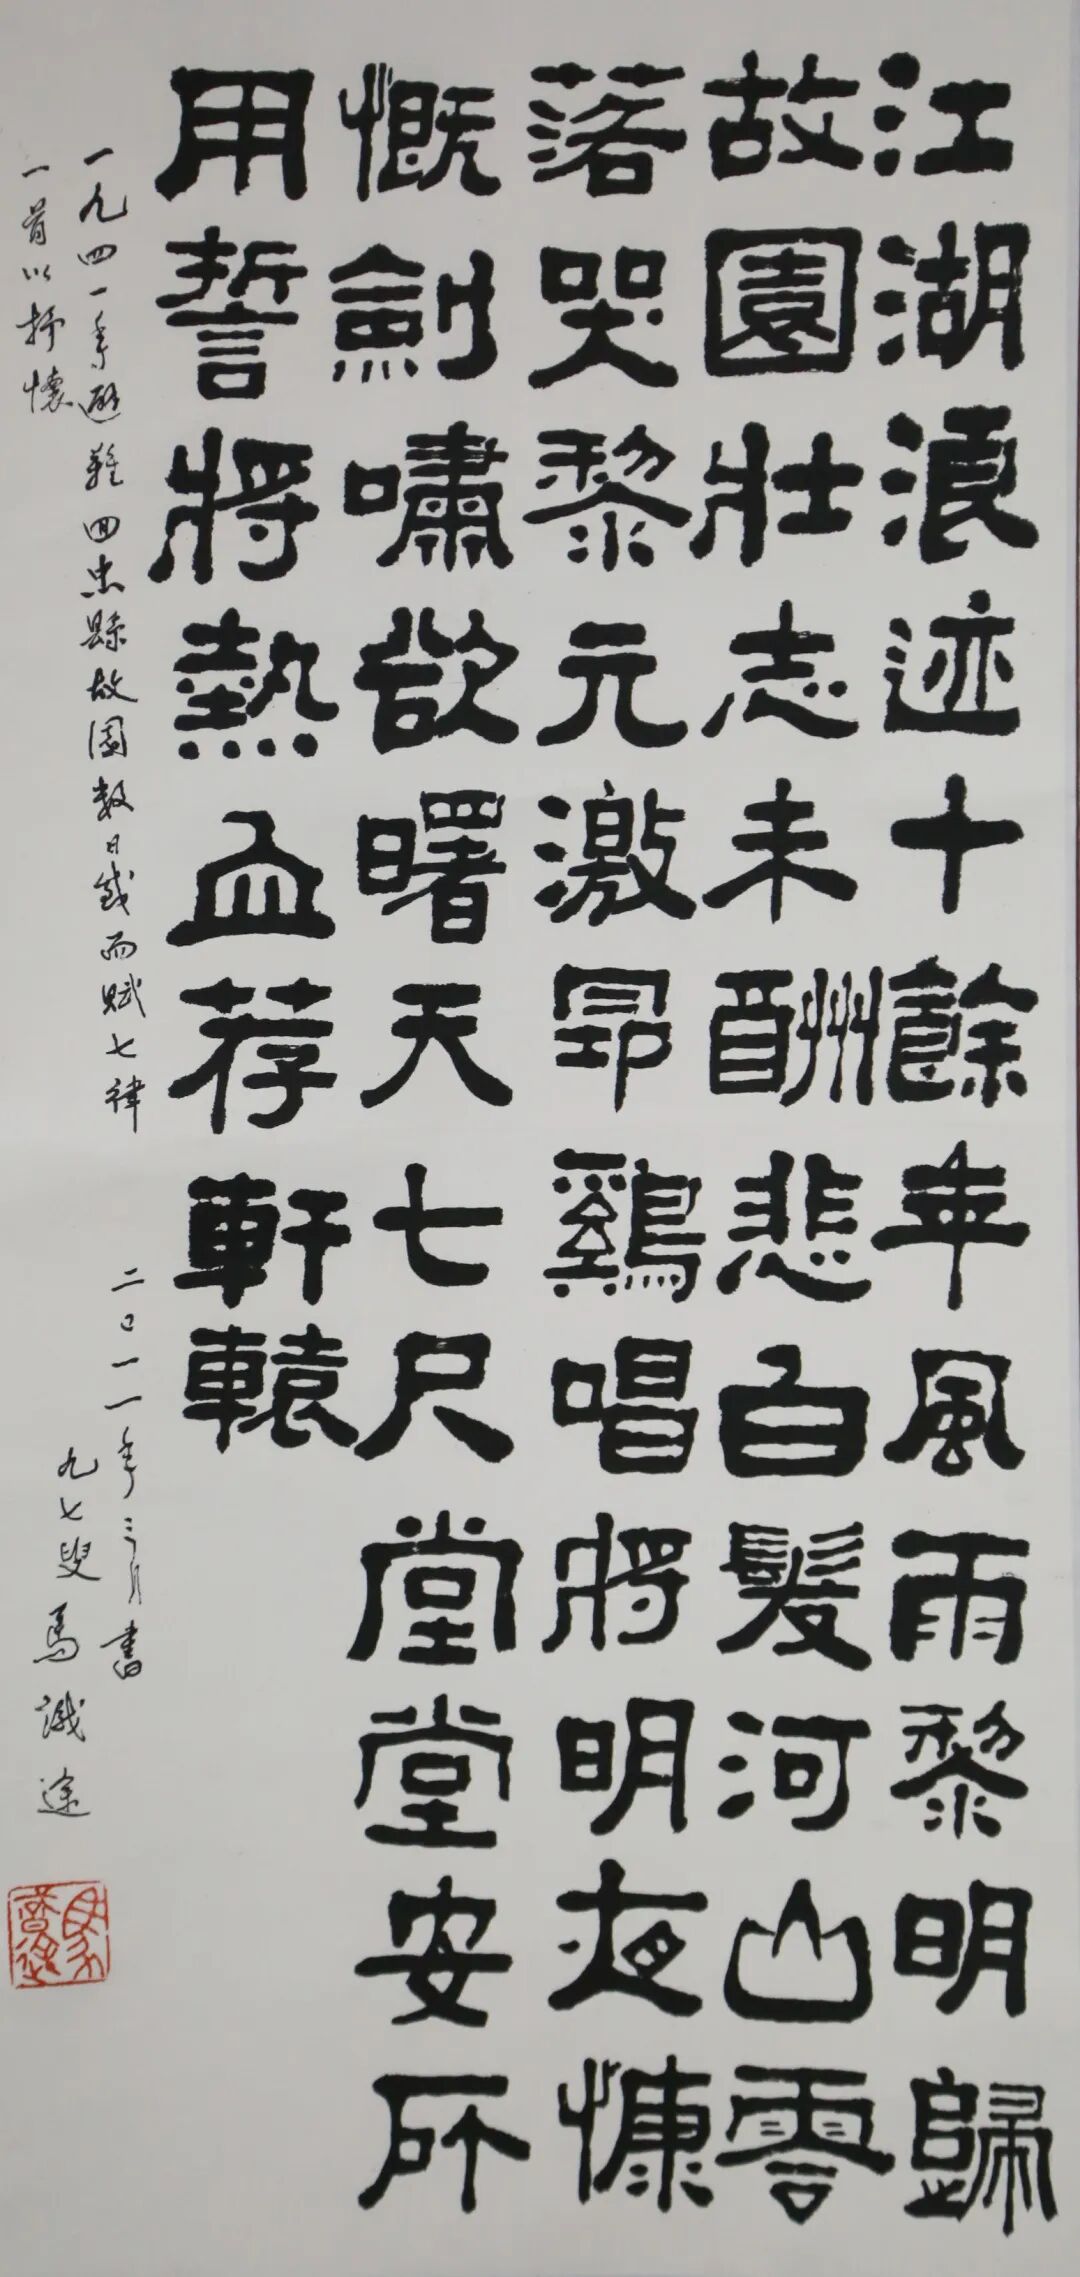 江湖浪迹十餘年風雨黎明歸
故園壯志未酬悲白髮河山零
落哭黎元激昂鷄唱將明夜慷
慨劍嘯欲曙天七尺堂堂安所
用誓將熱血荐軒轅
一九四一年避難回忠縣故園数日感而賦七律
一首以抒懷
二〇一一年三月書
九七叟馬識途